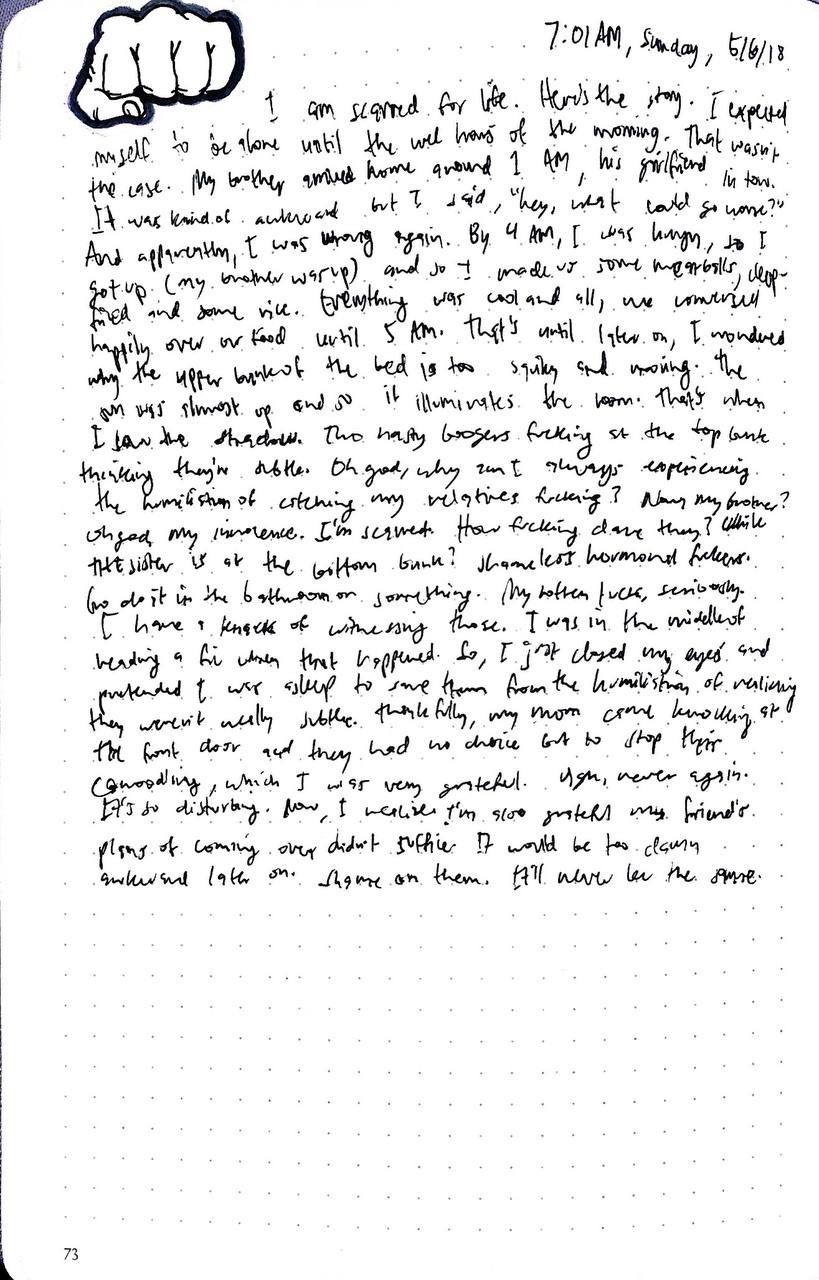 7:01AM, Sunday, 5/6/18
I am scarred for life. Here's the story. I expected
myself to be alone until the wee hours of the morning. That wasn't
the case. My brother arrived home around 1 AM, his girlfriend in tow.
It was kind of awkward but I said, "hey, what could go worse?"
And apparently, I was wrong again. By 4 AM, I was hungry, so I
got up (my brother was up) and so I made us some meatballs, deep-
fried and some rice. Everything was cool and all, we conversed
happily over our food until 5 AM. That's until later on, I wondered
why the upper bunk of the bed is too squiky and moving. The
sun was almost up and so it illuminates the room. That's when
I saw the shadow. Two nasty boogers fucking at the top bunk
thinking they're subtle. Oh god, why am I always experiencing
the humiliation of catching my relatives fucking? Now my brother?
Oh god, my innocence. I'm scarred. How fucking dare they? While
THE sister is at the bottom bunk? Shameless hormonal fuckers.
Go do it in the bathroom or something. My rotten luck, seriously.
I have a knack of witnessing those. I was in the middle of
reading a fic when that happened. So, I just closed my eyes and
pretended I was asleep to save them from the humiliation of realizing
they weren't really subtle. Thankfully, my mom came knocking at
the front door and they had no choice but to stop their
canoodling, which I was very grateful. Ugh, never again.
It's so disturbing. Now, I realize I'm also grateful my friend's
plans of coming over didn't suffice. It would be too damn
awkward later on. Shame on them. It'll never be the same.
73